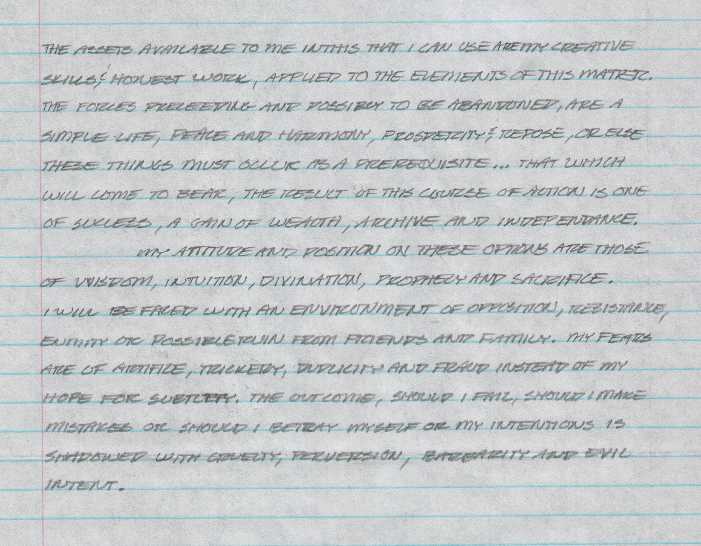 THE ASSETS AVAILABLE TO ME IN THIS THAT I CAN USE ARE MY CREATIVE
SKILLS & HONEST WORK, APPLIED TO THE ELEMENTS OF THIS MATRIX.
THE FORCES PRECEEDING AND POSSIBLY TO BE ABANDONED, ARE A
SIMPLE LIFE, PEACE AND HARMONY, PROSPERITY & REPOSE, OR ELSE
THESE THINGS MUST OCCUR AS A PREREQUISITE... THAT WHICH
WILL COME TO BEAR, THE RESULT OF THIS COURSE OF ACTION IS ONE
OF SUCCESS, A GAIN OF WEALTH, ARCHIVE AND INDEPENDANCE.
MY ATTITUDE AND POSITION ON THESE OPTIONS ARE THOSE
OF WISDOM, INTUITION, DIVINATION, PROPHECY AND SACRIFICE.
I WILL BE FACED WITH AN ENVIRONMENT OF OPPOSITION, RESISTANCE,
ENMITY OR POSSIBLE RUIN FROM FRIENDS AND FAMILY. MY FEARS
ARE OF ARTIFICE, TRICKERY, DUPLICITY AND FRAUD INSTEAD OF MY
HOPE FOR SUBTLETY. THE OUTCOME, SHOULD I FAIL, SHOULD I MAKE
MISTAKES OR SHOULD I BETRAY MYSELF OR MY INTENTIONS IS
SHADOWED WITH CRUELTY, PERVERSION, BARBARITY AND EVIL
INTENT.